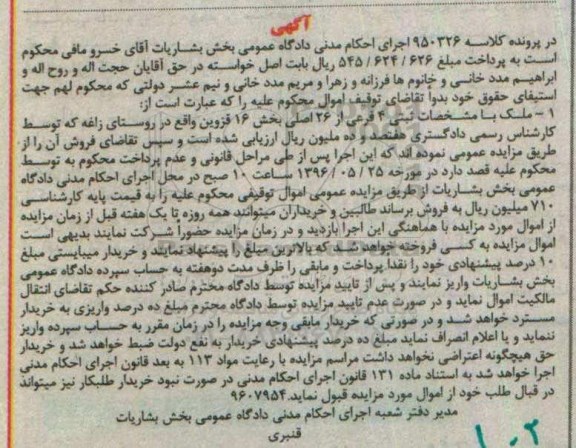 آگهی
در پرونده کلاسه ۹۵۰۳۲۶ اجرای احکام مدنی دادگاه عمومی بخش بشاریات آقای خسرو مافی محکوم
است به پرداخت مبلغ ۶۲۶ / ۶۲۴ / ۵۴۵ ریال بابت اصل خواسته در حق آقایان حجت اله و روح اله و
ابراهیم مدد خانی و خانوم ها فرزانه و زهرا و مریم مدد خانی و نیم عشر دولتی که محکوم لهم جهت
استیفای حقوق خود بدوا تقاضای توقیف اموال محکوم علیه را که عبارت است از:
۱ - ملک با مشخصات ثبتی ۴ فرعی از ۲۶ اصلی بخش ۱۶ قزوین واقع در روستای زاغه که توسط
کارشناس رسمی دادگستری هفتصد و ده ملیون ریال ارزیابی شده است و سپس تقاضای فروش آن را از
طریق مزایده عمومی نموده اند که این اجرا پس از طی مراحل قانونی و عدم پرداخت محکوم به توسط
محکوم علیه قصد دارد در مورخه ۲۵ / ۰۵ / ۱۳۹۶ ساعت ۱۰ صبح در محل اجرای احکام مدنی دادگاه
عمومی بخش بشاریات از طریق مزایده عمومی اموال توقیفی محکوم علیه را به قیمت پایه کارشناسی
۷۱۰ ملیون ریال به فروش برساند طالبین و خریداران میتوانند همه روزه تا یک هفته قبل از زمان مزایده
از اموال مورد مزایده با هماهنگی این اجرا بازدید و در زمان مزایده حضورا شرکت نمایند بدیهی است
اموال مزایده به کسی فروخته خواهد شد که بالاترین مبلغ را پیشنهاد نمایند و خریدار میبایستی مبلغ
۱۰ درصد پیشنهادی خود را نقدا پرداخت و مابقی را ظرف مدت دوهفته به حساب سپرده دادگاه عمومی
بخش بشاریات واریز نمایند و پس از تایید مزایده توسط دادگاه محترم صادر کننده حکم تقاضای انتقال
مالکیت اموال نماید و در صورت عدم تایید مزایده توسط دادگاه محترم مبلغ ده درصد واریزی به خریدار
مسترد خواهد شد و در صورتی که خریدار مابقی وجه مزایده را در زمان مقرر به حساب سپرده واریز
ننماید و یا اعلام انصراف نماید مبلغ ده درصد پیشنهادی خریدار به نفع دولت ضبط خواهد شد و خریدار
حق هیچگونه اعتراضی نخواهد داشت مراسم مزایده با رعایت مواد ۱۱۳ به بعد قانون اجرای احکام مدنی
اجرا خواهد شد به استناد ماده ۱۳۱ قانون اجرای احکام مدنی در صورت نبود خریدار طلبکار نیز میتواند
در قبال طلب خود از اموال مورد مزایده قبول نماید.۹۶۰۷۹۵۴
مدیر دفتر شعبه اجرای احکام مدنی دادگاه عمومی بخش بشاریات
قنبری
۱۰۲